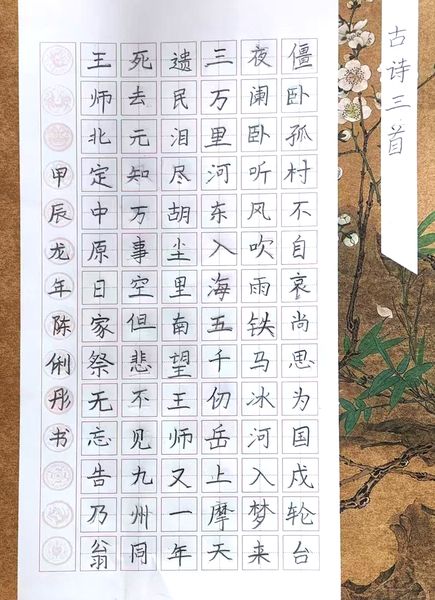 古诗三首
僵卧孤村不自哀尚思为国戍轮台
夜阑卧听风吹雨铁马冰河入梦来
三万里河东入海五千仞岳上摩天
遗民泪尽胡尘里南望王师又一年
死去元知万事空但悲不见九州同
王师北定中原日家祭无忘告乃翁
甲辰龙年陈俐彤书